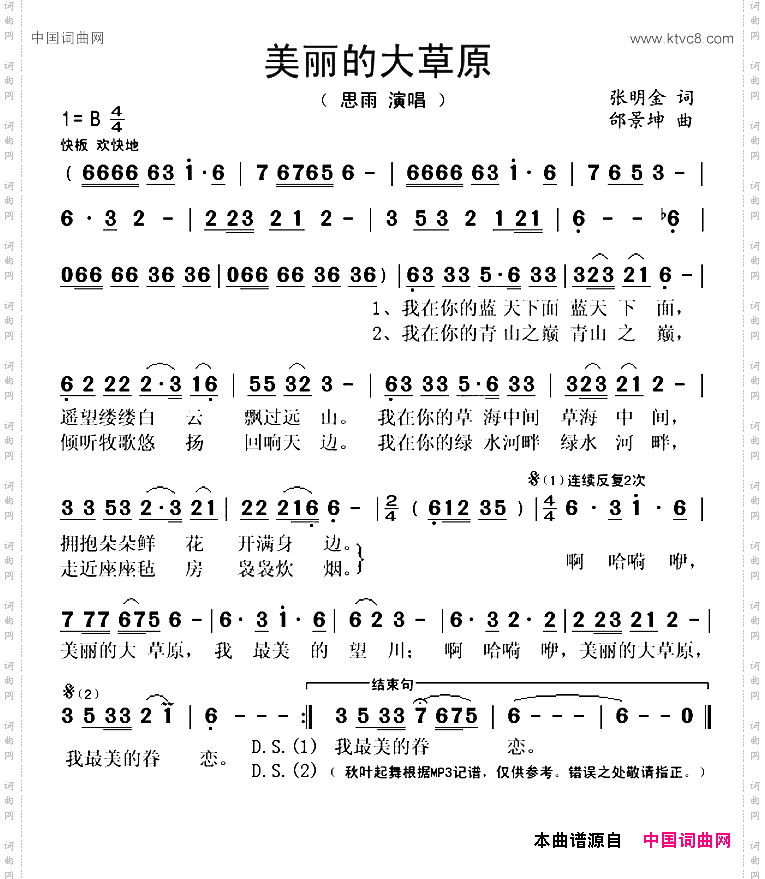 中国词曲网
www.ktvc8.com
美丽的大草原
（ 思雨 演唱 ）
张明金 词
邰景坤 曲
1= B 4/4
快板 欢快地
( 6666 63 1·6 | 7 6765 6 - | 6666 63 1·6 | 7 6 5 3 - |
6 · 3 2 - | 2 23 2 1 2 - | 3 5 3 2 1 21 | 6 - - ♭6 |
066 66 36 36 | 066 66 36 36 ) | 63 33 5·6 33 | 323 21 6 - |
1、我在你的蓝 天下面 蓝天 下 面，
2、我在你的青 山之巅 青山 之 巅，
6 2 22 2·3 16 | 55 32 3 - | 63 33 5·6 33 | 323 21 2 - |
遥望缕缕白 云 飘过远 山。 我在你的草 海中间 草海 中 间，
倾听牧歌悠 扬 回响天 边。 我在你的绿 水河畔 绿水 河 畔，
𝄋(1)连续反复2次
3 3 53 2·3 21 | 22 216 6 - | 2/4 ( 612 35 ) | 4/4 6 · 3 1 · 6 |
拥抱朵朵鲜 花 开满身 边。
走近座座毡 房 袅袅炊 烟。
啊 哈嗬 咿，
7 77 675 6 - | 6 · 3 1 · 6 | 6 2 3 - | 6 · 3 2 · 2 | 2 23 21 2 - |
美丽的大 草原， 我 最美 的 望 川； 啊 哈嗬 咿，美丽的大草原，
𝄋(2)
结束句
3 5 33 2 1 | 6 - - - :‖ 3 5 33 7 675 | 6 - - - | 6 - - 0 ‖
我最美的眷 恋。
D.S.(1) 我最美的眷 恋。
D.S.(2) （ 秋叶起舞根据MP3记谱，仅供参考。错误之处敬请指正。）
本曲谱源自 中国词曲网